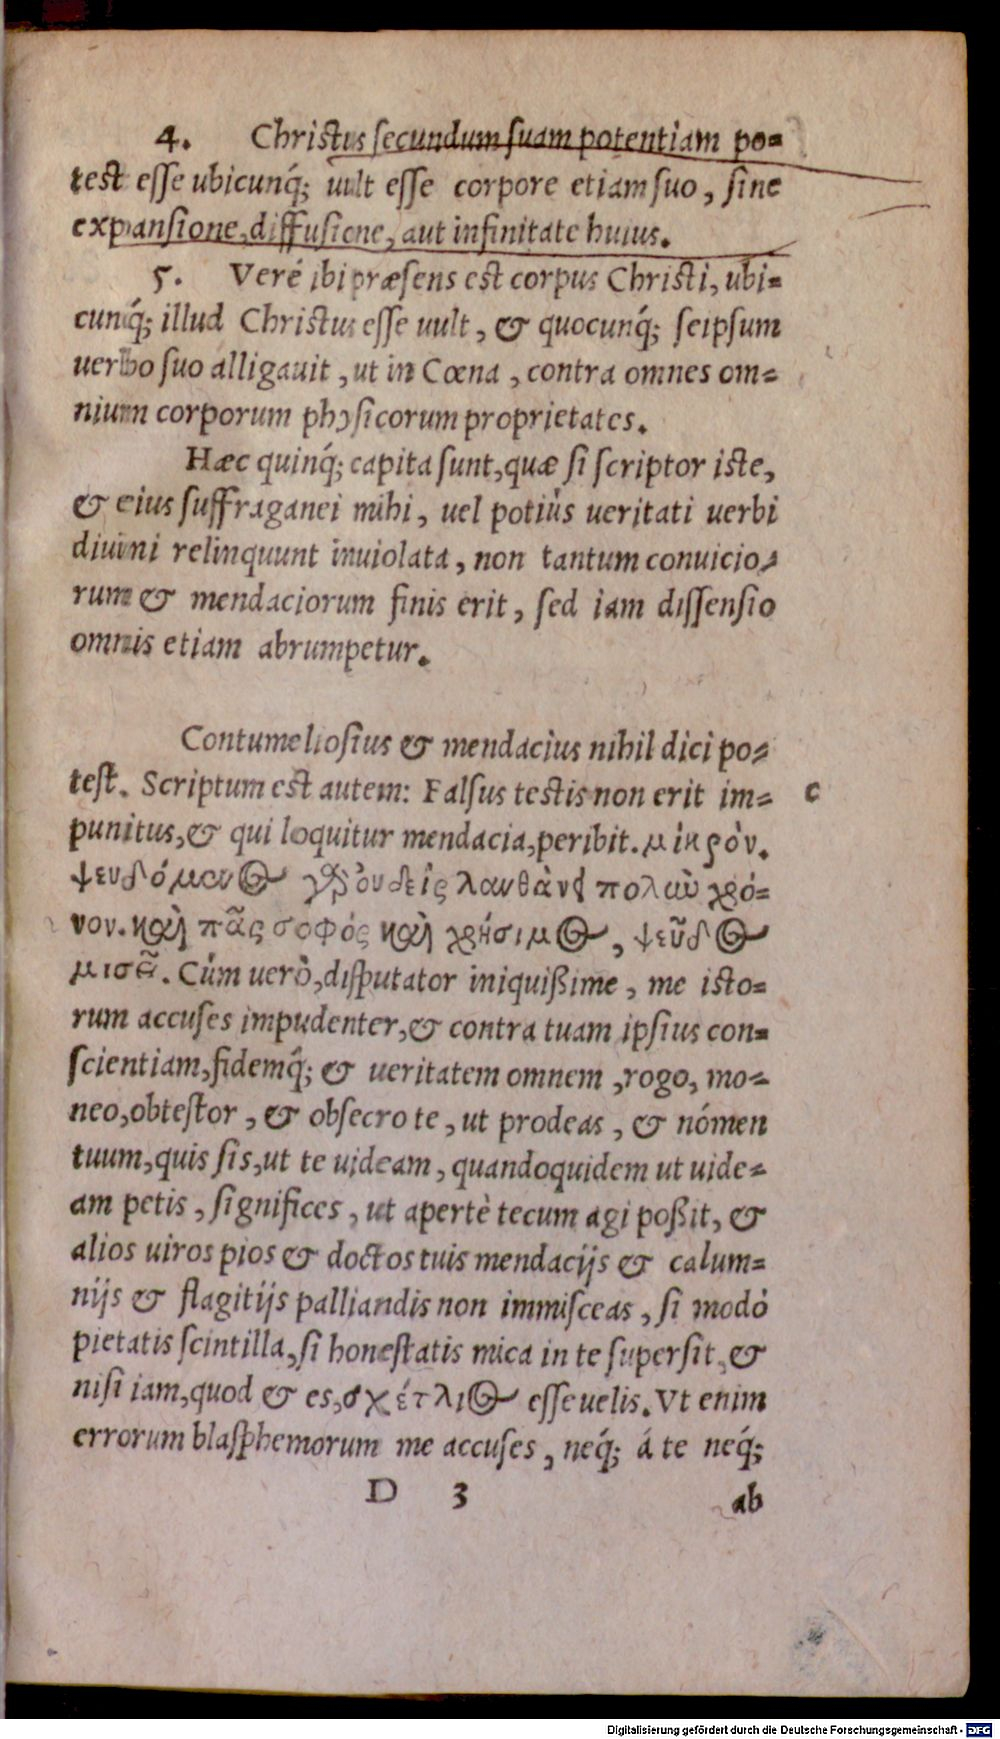 4. Christus secundum suam potentiam po=
test esse ubicunq́; uult esse corpore etiam suo, sine
expansione, diffusione, aut infinitate huius.
5. Verè ibi præsens est corpus Christi, ubi=
cunq́; illud Christus esse uult, & quocunq́; seipsum
uerbo suo alligauit, ut in Cœna, contra omnes om=
nium corporum physicorum proprietates.
Hæc quinq́; capita sunt, quæ si scriptor iste,
& eius suffraganei mihi, uel potiùs ueritati uerbi
diuini relinquunt inuiolata, non tantum conuicio=
rum & mendaciorum finis erit, sed iam dissensio
omnis etiam abrumpetur.
Contumeliosius & mendacius nihil dici po=
test. Scriptum est autem: Falsus testis non erit im= C
punitus, & qui loquitur mendacia, peribit. μικρὸν.
ψευδόμενος γὰρ οὐδεὶς λανθάνει πολὺν χρό=
νον. καὶ πᾶς σοφός καὶ χρήσιμος, ψεῦδος
μισεῖ. Cùm uerò, disputator iniquißime, me isto=
rum accuses impudenter, & contra tuam ipsius con=
scientiam, fidemq́; & ueritatem omnem, rogo, mo=
neo, obtestor, & obsecro te, ut prodeas, & nómen
tuum, quis sis, ut te uideam, quandoquidem ut uide=
am petis, significes, ut apertè tecum agi poßit, &
alios uiros pios & doctos tuis mendacijs & calum=
nijs & flagitijs palliandis non immisceas, si modò
pietatis scintilla, si honestatis mica in te supersit, &
nisi iam, quod & es, σχέτλιος esse uelis. Vt enim
errorum blasphemorum me accuses, neq́; á te neq́;
D 3 ab
Digitalisierung gefördert durch die Deutsche Forschungsgemeinschaft - DFG